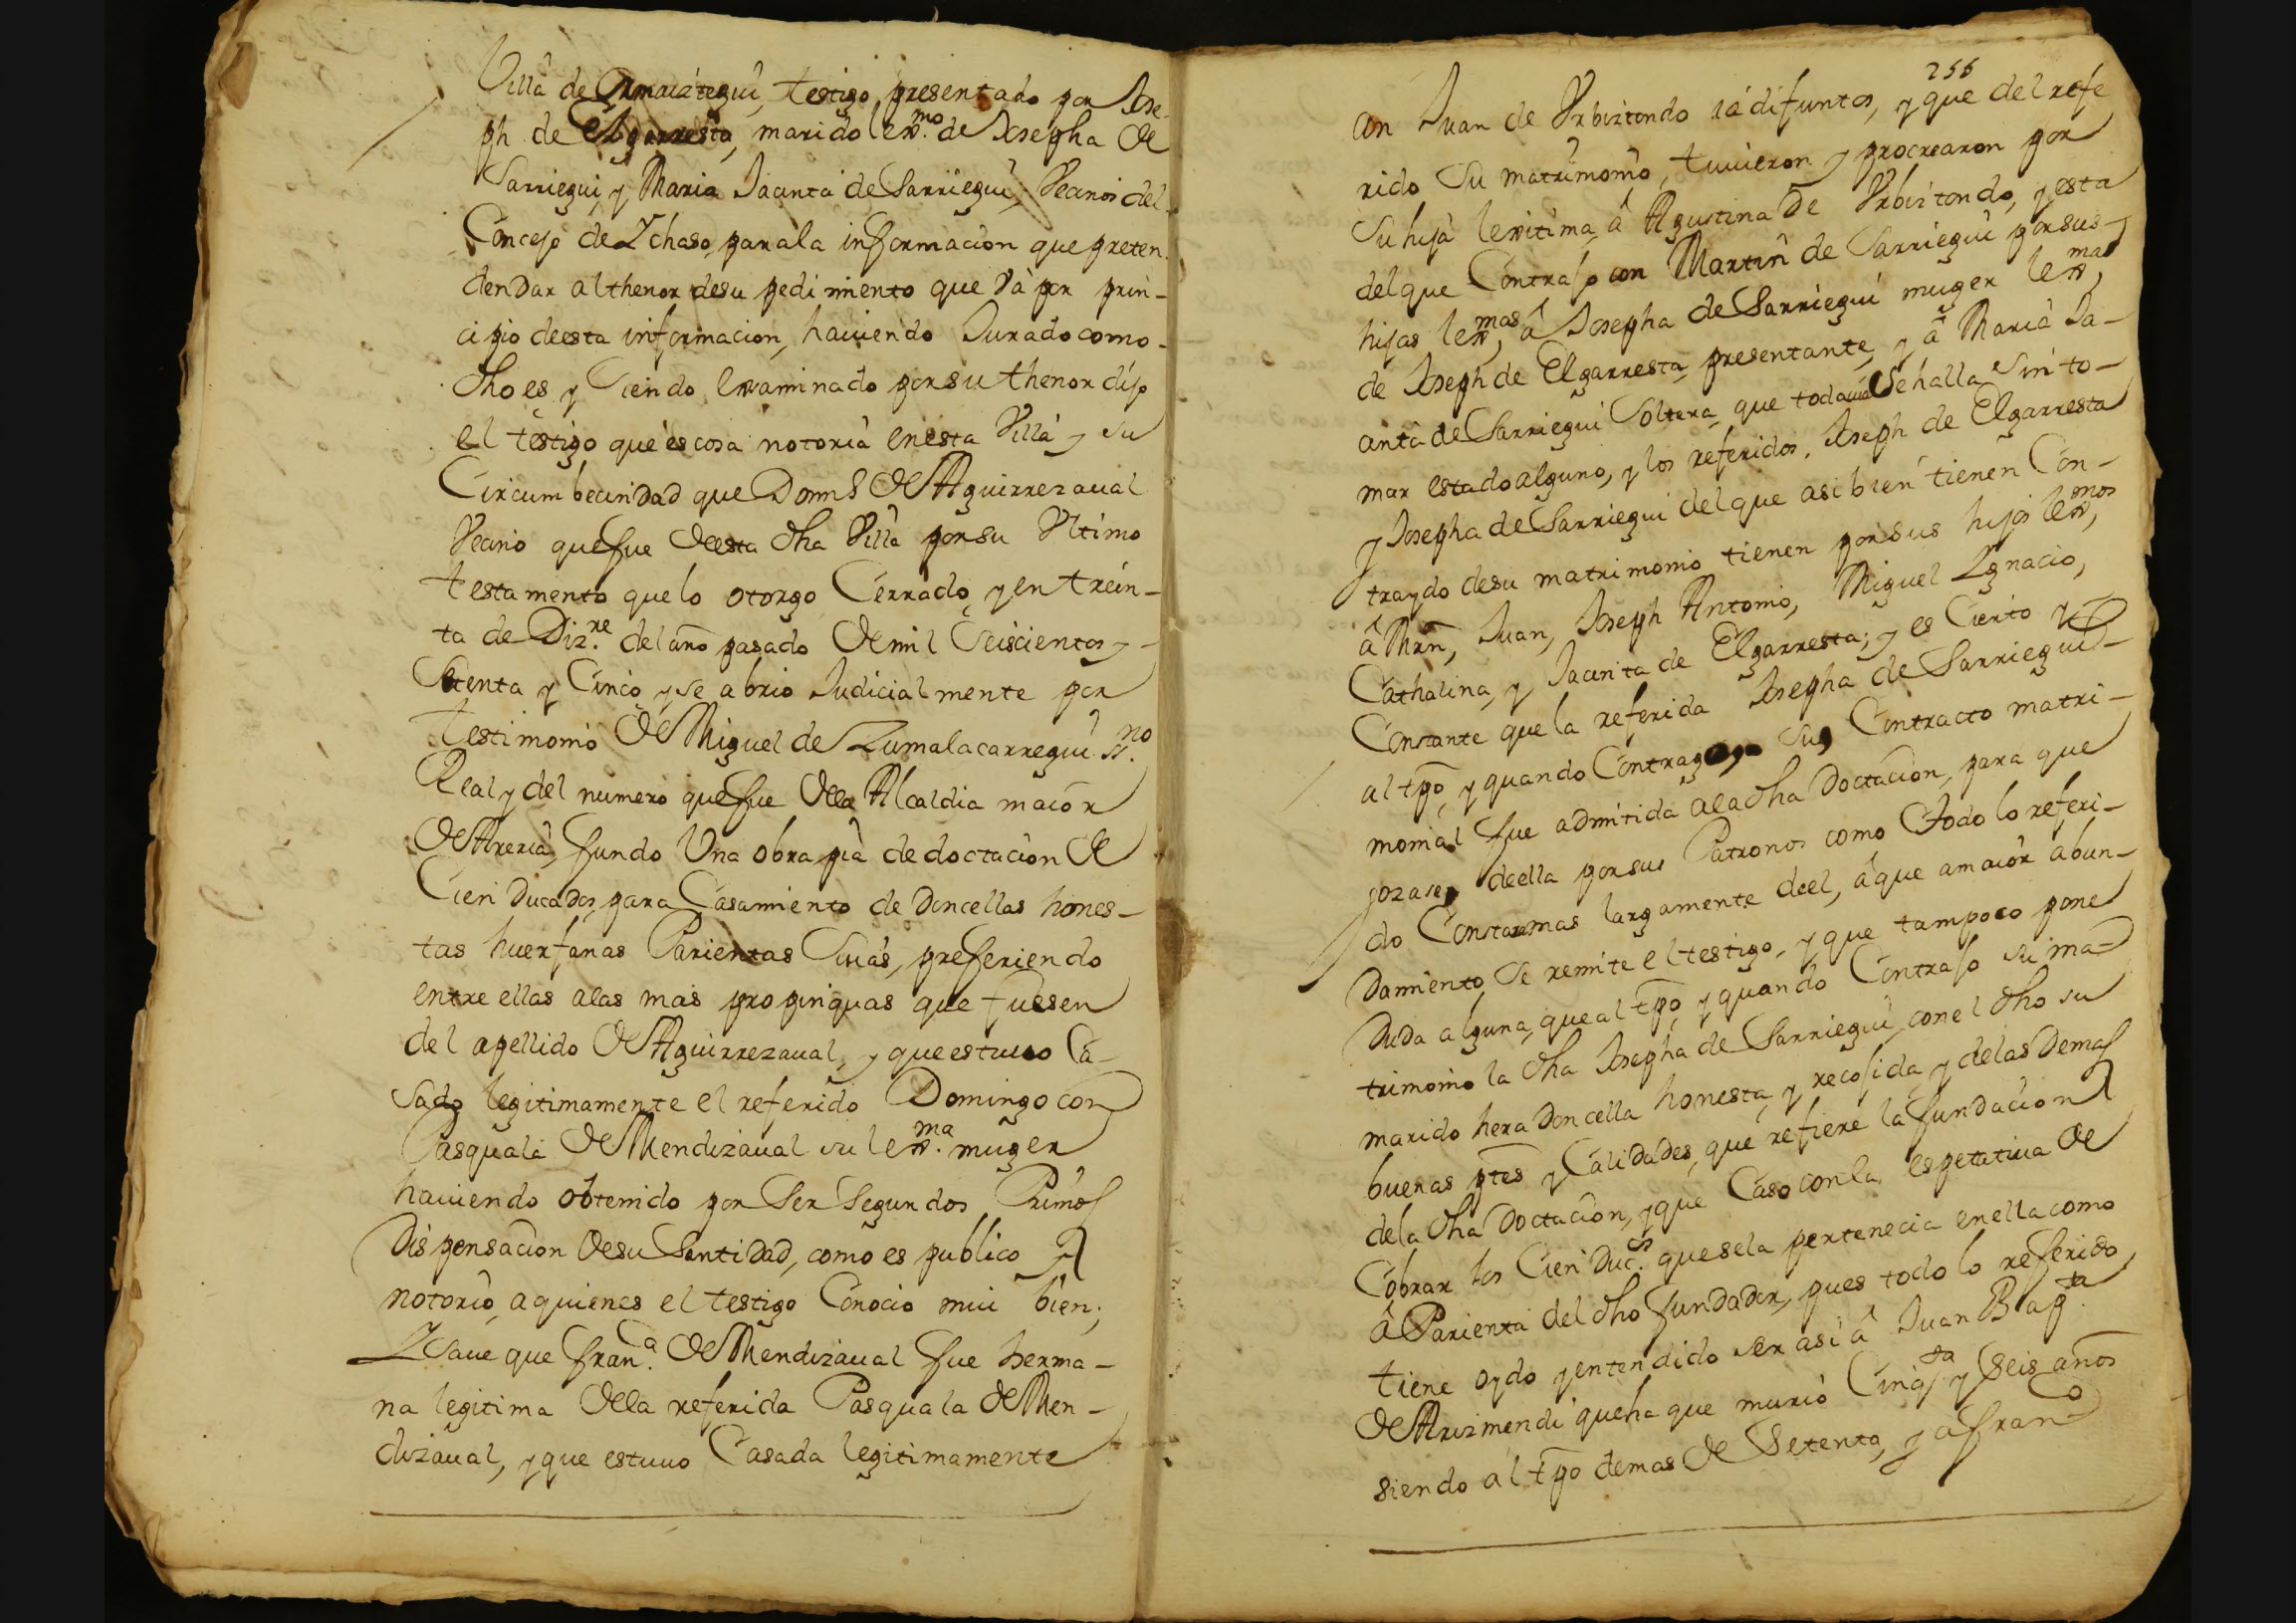 Villa de Ormaiztegui, testigo presentado por Jose-
ph de Elgarresta, marido lexmo. de Josepha de
Sarriegui, y Maria Jacinta de Sarriegui, Vecinos del
Concejo de Ychaso, para la informacion que preten
den Dar al thenor de su pedimiento que Va por prin-
cipio de esta informacion, haviendo Jurado como
dho es y Siendo Examinado por su thenor dijo
el testigo que es cosa notoria en esta Villa y su
Circumbecindad que Doms de Aguirrezaual
Vecino que fue de esta dha Villa por su Vltimo
testamento que lo otorgo Cerrado, y en trein-
ta de Dizre. del año pasado de mil Seiscientos y
Setenta y Cinco, y se abrio Judicialmente por
testimonio de Miguel de Zumalacarregui Sno.
Real y del numero que fue de la Alcaldia maior
de Areria, fundo Una obra pia de doctacion de
Cien Ducados, para Casamiento de Doncellas hones-
tas huerfanas Parientas Suias, prefiriendo
entre ellas a las mas propinquas que fuesen
del apellido de Aguirrezaual, y que estuuo Ca-
sado legitimamente el referido Domingo con
Pasquala de Mendizaual su lexma. muger
hauiendo obtenido por Ser Segundos Primos
Dispensacion de su Santidad, como es publico y
notorio, a quienes el testigo Conocio mui bien;
Y Saue que Frana. de Mendizaual fue herma-
na legitima de la referida Pasquala de Men-
dizaual, y que estuuo Casada legitimamente
256
an Juan de Vrbiztondo ia difuntos, y que del refe
rido Su matrimonio, tuuieron y procrearon por
Su hija lexitima, â Agustina De Vrbiztondo, y esta
del que Contrajo con Martin de Sarriegui por sus
hijas lexmas, â Josepha de Sarriegui muger lexma,
de Joseph de Elgarresta, presentante, y â Maria Ja-
cinta de Sarriegui Soltera, que todauia Se halla Sin to-
mar estado alguno, y los referidos, Joseph de Elgarresta
y Josepha de Sarriegui del que asi bien tienen Con-
traydo de su matrimonio tienen por sus hijos lexmos,
â Mrn, Juan, Joseph Antonio, Miguel Ygnacio,
Cathalina, y Jacinta de Elgarresta; y es Cierto y
Constante que la referida Josepha de Sarriegui
al tpo, y quando Contrajo Su Contracto matri-
monial fue admitida a la dha Doctacion, para que
gozase de ella por sus Patronos como todo lo referi-
do Constara mas largamente de el, â que a maior abun-
Damiento, Se remite el testigo, y que tampoco pone
Duda alguna, que al tpo, y quando Contrajo su ma-
trimonio la dha Josepha de Sarriegui, con el dho su
marido hera Doncella honesta, y recojida, y de las Demas
buenas ptes y Calidades, que refiere la fundacion
de la dha Doctacion, y que Caso con la espetatiua de
Cobrar los Cien Ducs. que se la pertenecia en ella como
â Parienta del dho fundador, pues todo lo referido,
tiene oydo y entendido ser asi â Juan Bapta.
de Arizmendi que ha que murio Cinqta y Seis años
siendo al tpo de mas de Setenta, y a Franco